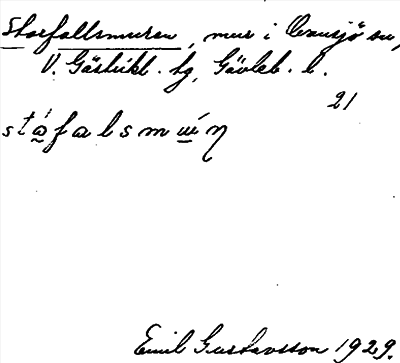 Storfallsmuren, mur i Ovansjö sn,
V. Gästrikl. tg, Gävleb. l.
21
Emil Gustavsson 1929.